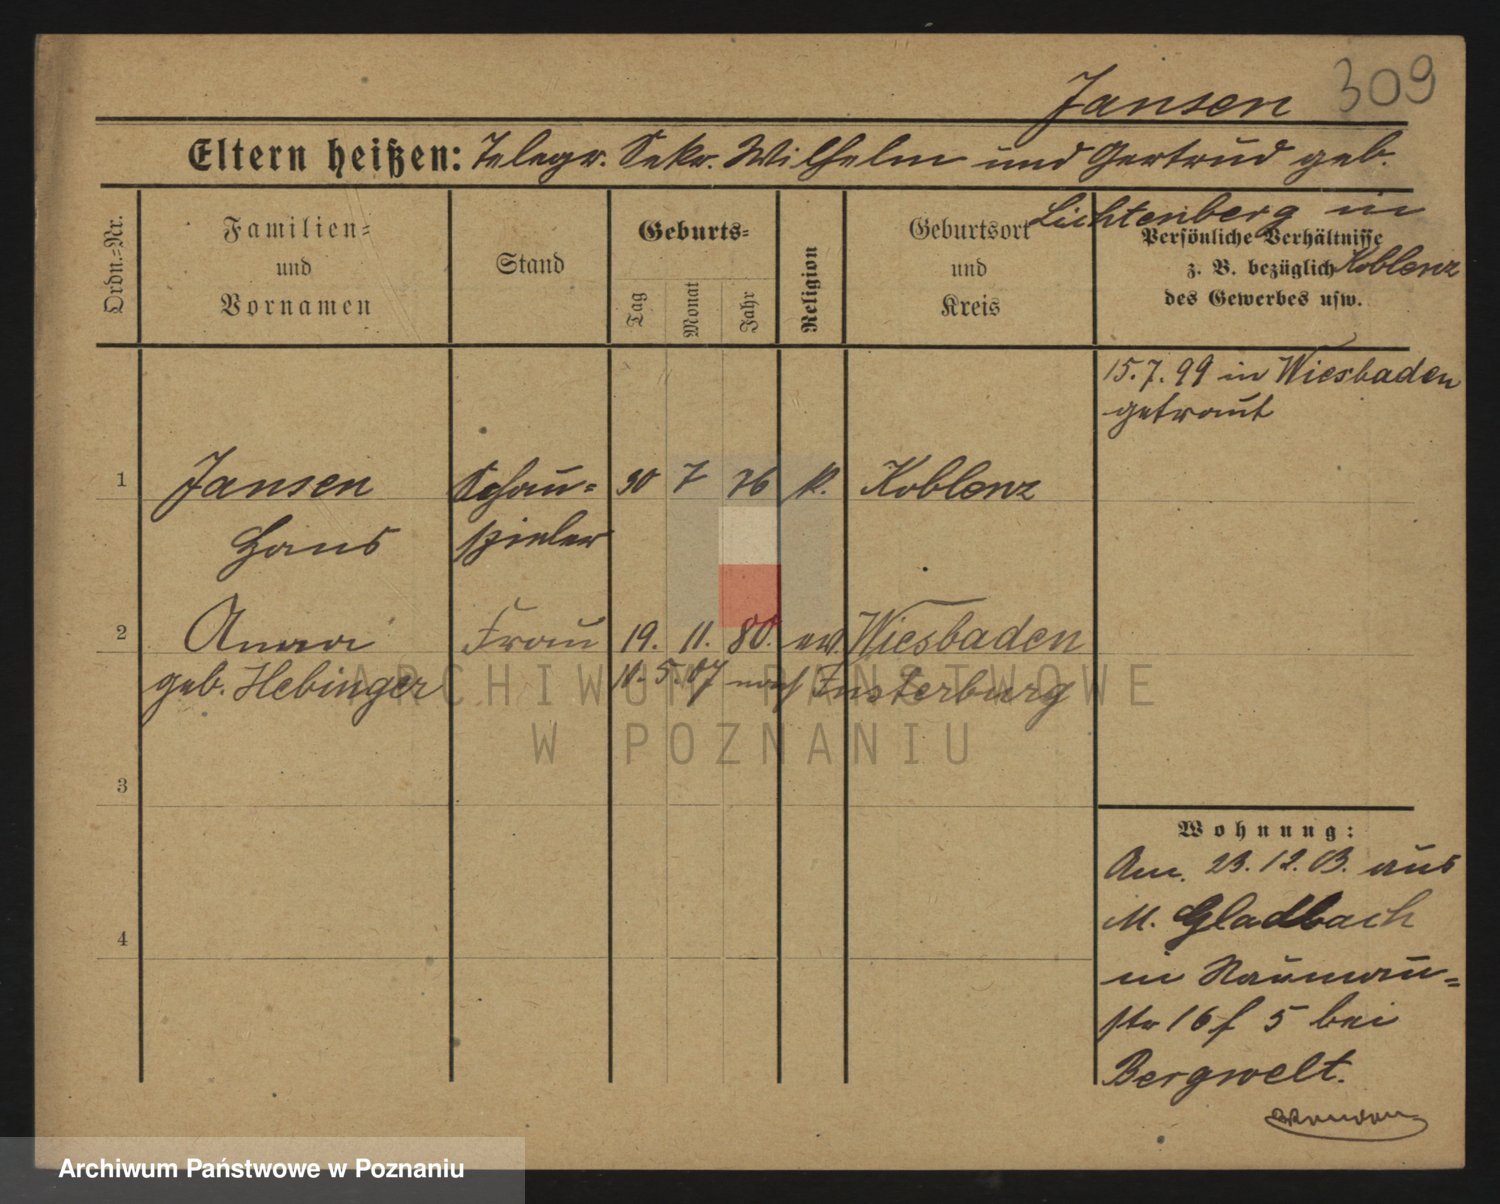 309
Jansen
Eltern heißen: Telegr. Sekr. Wilhelm und Gertrud geb.
Lichtenberg in
Koblenz
Ordn.-Nr.
Familien-
und
Vornamen
Stand
Geburts-
Tag
Monat
Jahr
Religion
Geburtsort
und
Kreis
Persönliche Verhältnisse
z. B. bezüglich
des Gewerbes usw.
15.7.99 in Wiesbaden
getraut
1 Jansen Schau- 30 7 76 k. Koblenz
Hans spieler
2 Anna Frau 19. 11. 80. ev. Wiesbaden
geb. Hebinger 11.5.07 nach Insterburg
3
4
Wohnung:
Am 23.12.03. aus
M. Gladbach
in Nauman-
str 16 f 5 bei
Bergwelt.
ARCHIWUM PAŃSTWOWE
W POZNANIU
Archiwum Państwowe w Poznaniu